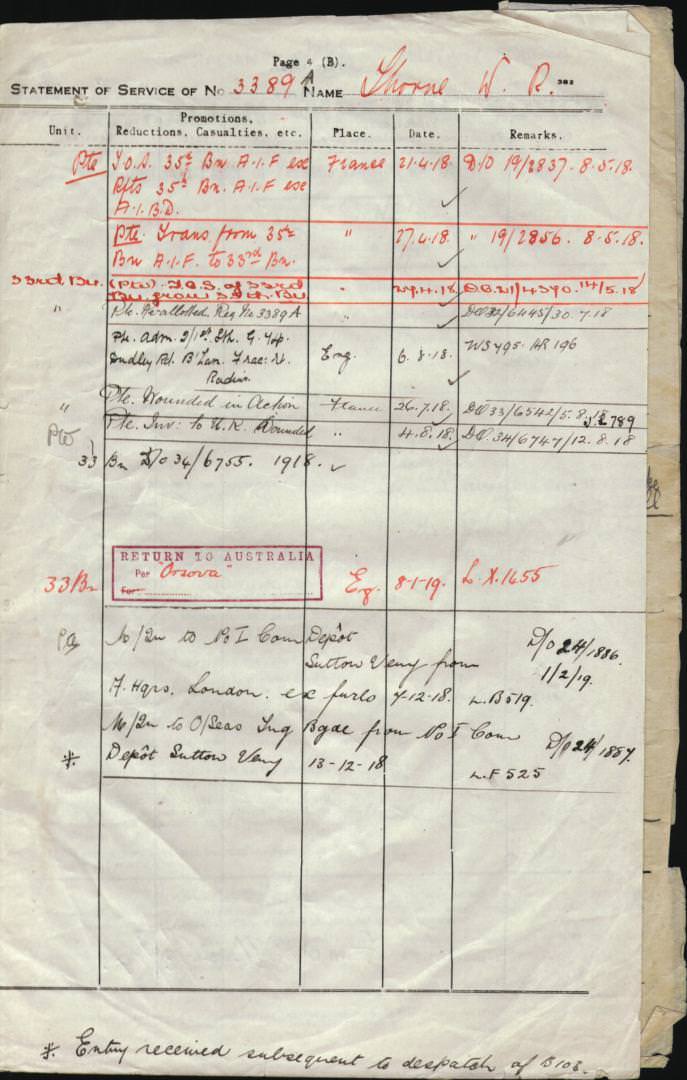 Page 4 (B).
STATEMENT OF SERVICE OF No 3389 A NAME Thorne W. R. 382
Unit. Promotions, Reductions, Casualties, etc. Place. Date. Remarks.
Pte T.O.S. 35th Bn. A.I.F exe France 21.4.18. D/O 19/2837. 8.5.18.
Rfts 35th Bn. A.I.F exe
A.I.B.D.
Pte. Trans from 35th " 27.4.18. " 19/2856. 8.5.18.
Bn A.I.F. to 33rd Bn.
33rd Bn. (Pte) T.O.S. of 33rd " 27.4.18 DO.21/4390. 14/5.18
Bn. from 35th. Bn
" Pte. Re-allotted Reg No 3389A " DO32/6445/30.7.18
Pte. Adm. 2/1st Sth. G. Hp.
Dudley Rd. B'ham. Frac: Rt. Eng. 6.8.18. WS495. HR 196
Radius
" Pte. Wounded in Action France 26.7.18. DO33/6542/5.8.18
Pte Pte. Inv: to U.K. Wounded " 4.8.18. DO.34/6747/12.8.18
33 Bn D/O 34/6755. 1918.
RETURN TO AUSTRALIA
Per "Orsova"
For
33 Bn Eng. 8-1-19. L.X.1655
M/In to No I Com Depôt D/O 24/1886.
Sutton Veny from 1/2/19.
A. Hqrs. London. ex furlo 7-12-18. L.B519.
M/In to O/Seas Tng Bgde from No I Com D/O 24/1887.
*. Depôt Sutton Veny 13-12-18. L.F 525
*. Entry received subsequent to despatch of B103.